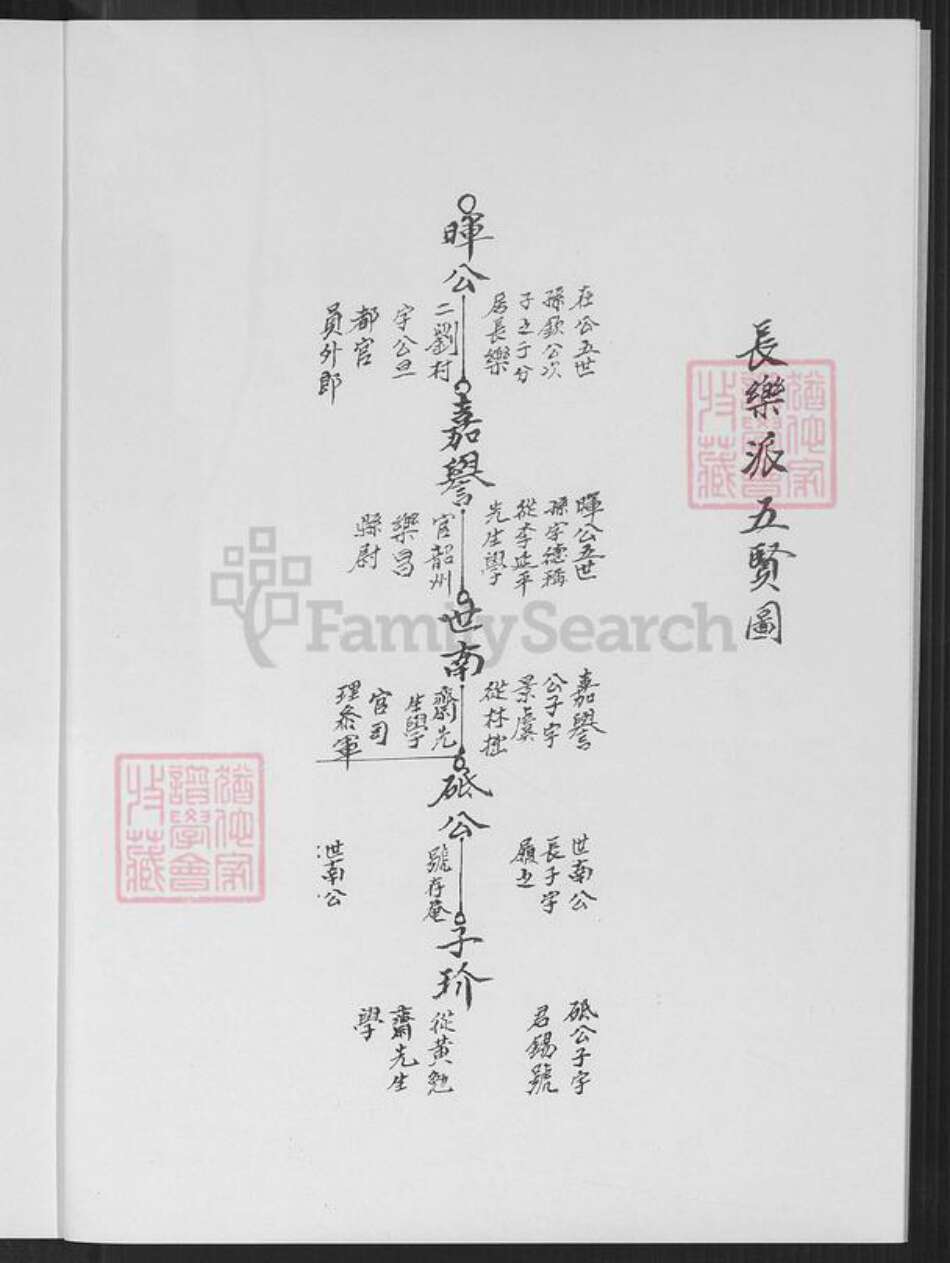 長樂派五賢圖
暉公
在公五世
孫欽公次
子之子分
居長樂
二劉村
字公旦
都官
員外郎
嘉譽
暉公五世
孫字德稱
從李延平
先生學
官韶州
樂昌
縣尉
世南
嘉譽
公子字
景虞
從林拙
齋先
生學
官司
理叅軍
砥公
世南公
長子字
履之
號存菴
世南公
子玠
砥公子字
君錫號
從黃勉
齋先生
學
猶他家
譜學會
收藏
猶他家
譜學會
收藏
FamilySearch